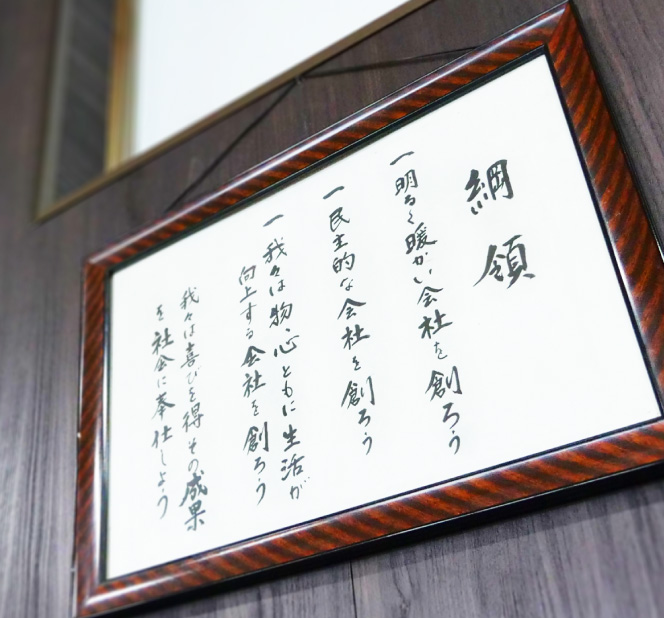 綱領
一明るく暖かい会社を創ろう
一民主的な会社を創ろう
一我々は物、心ともに生活が
向上する会社を創ろう
我々は喜びを得その成果
を社会に奉仕しよう